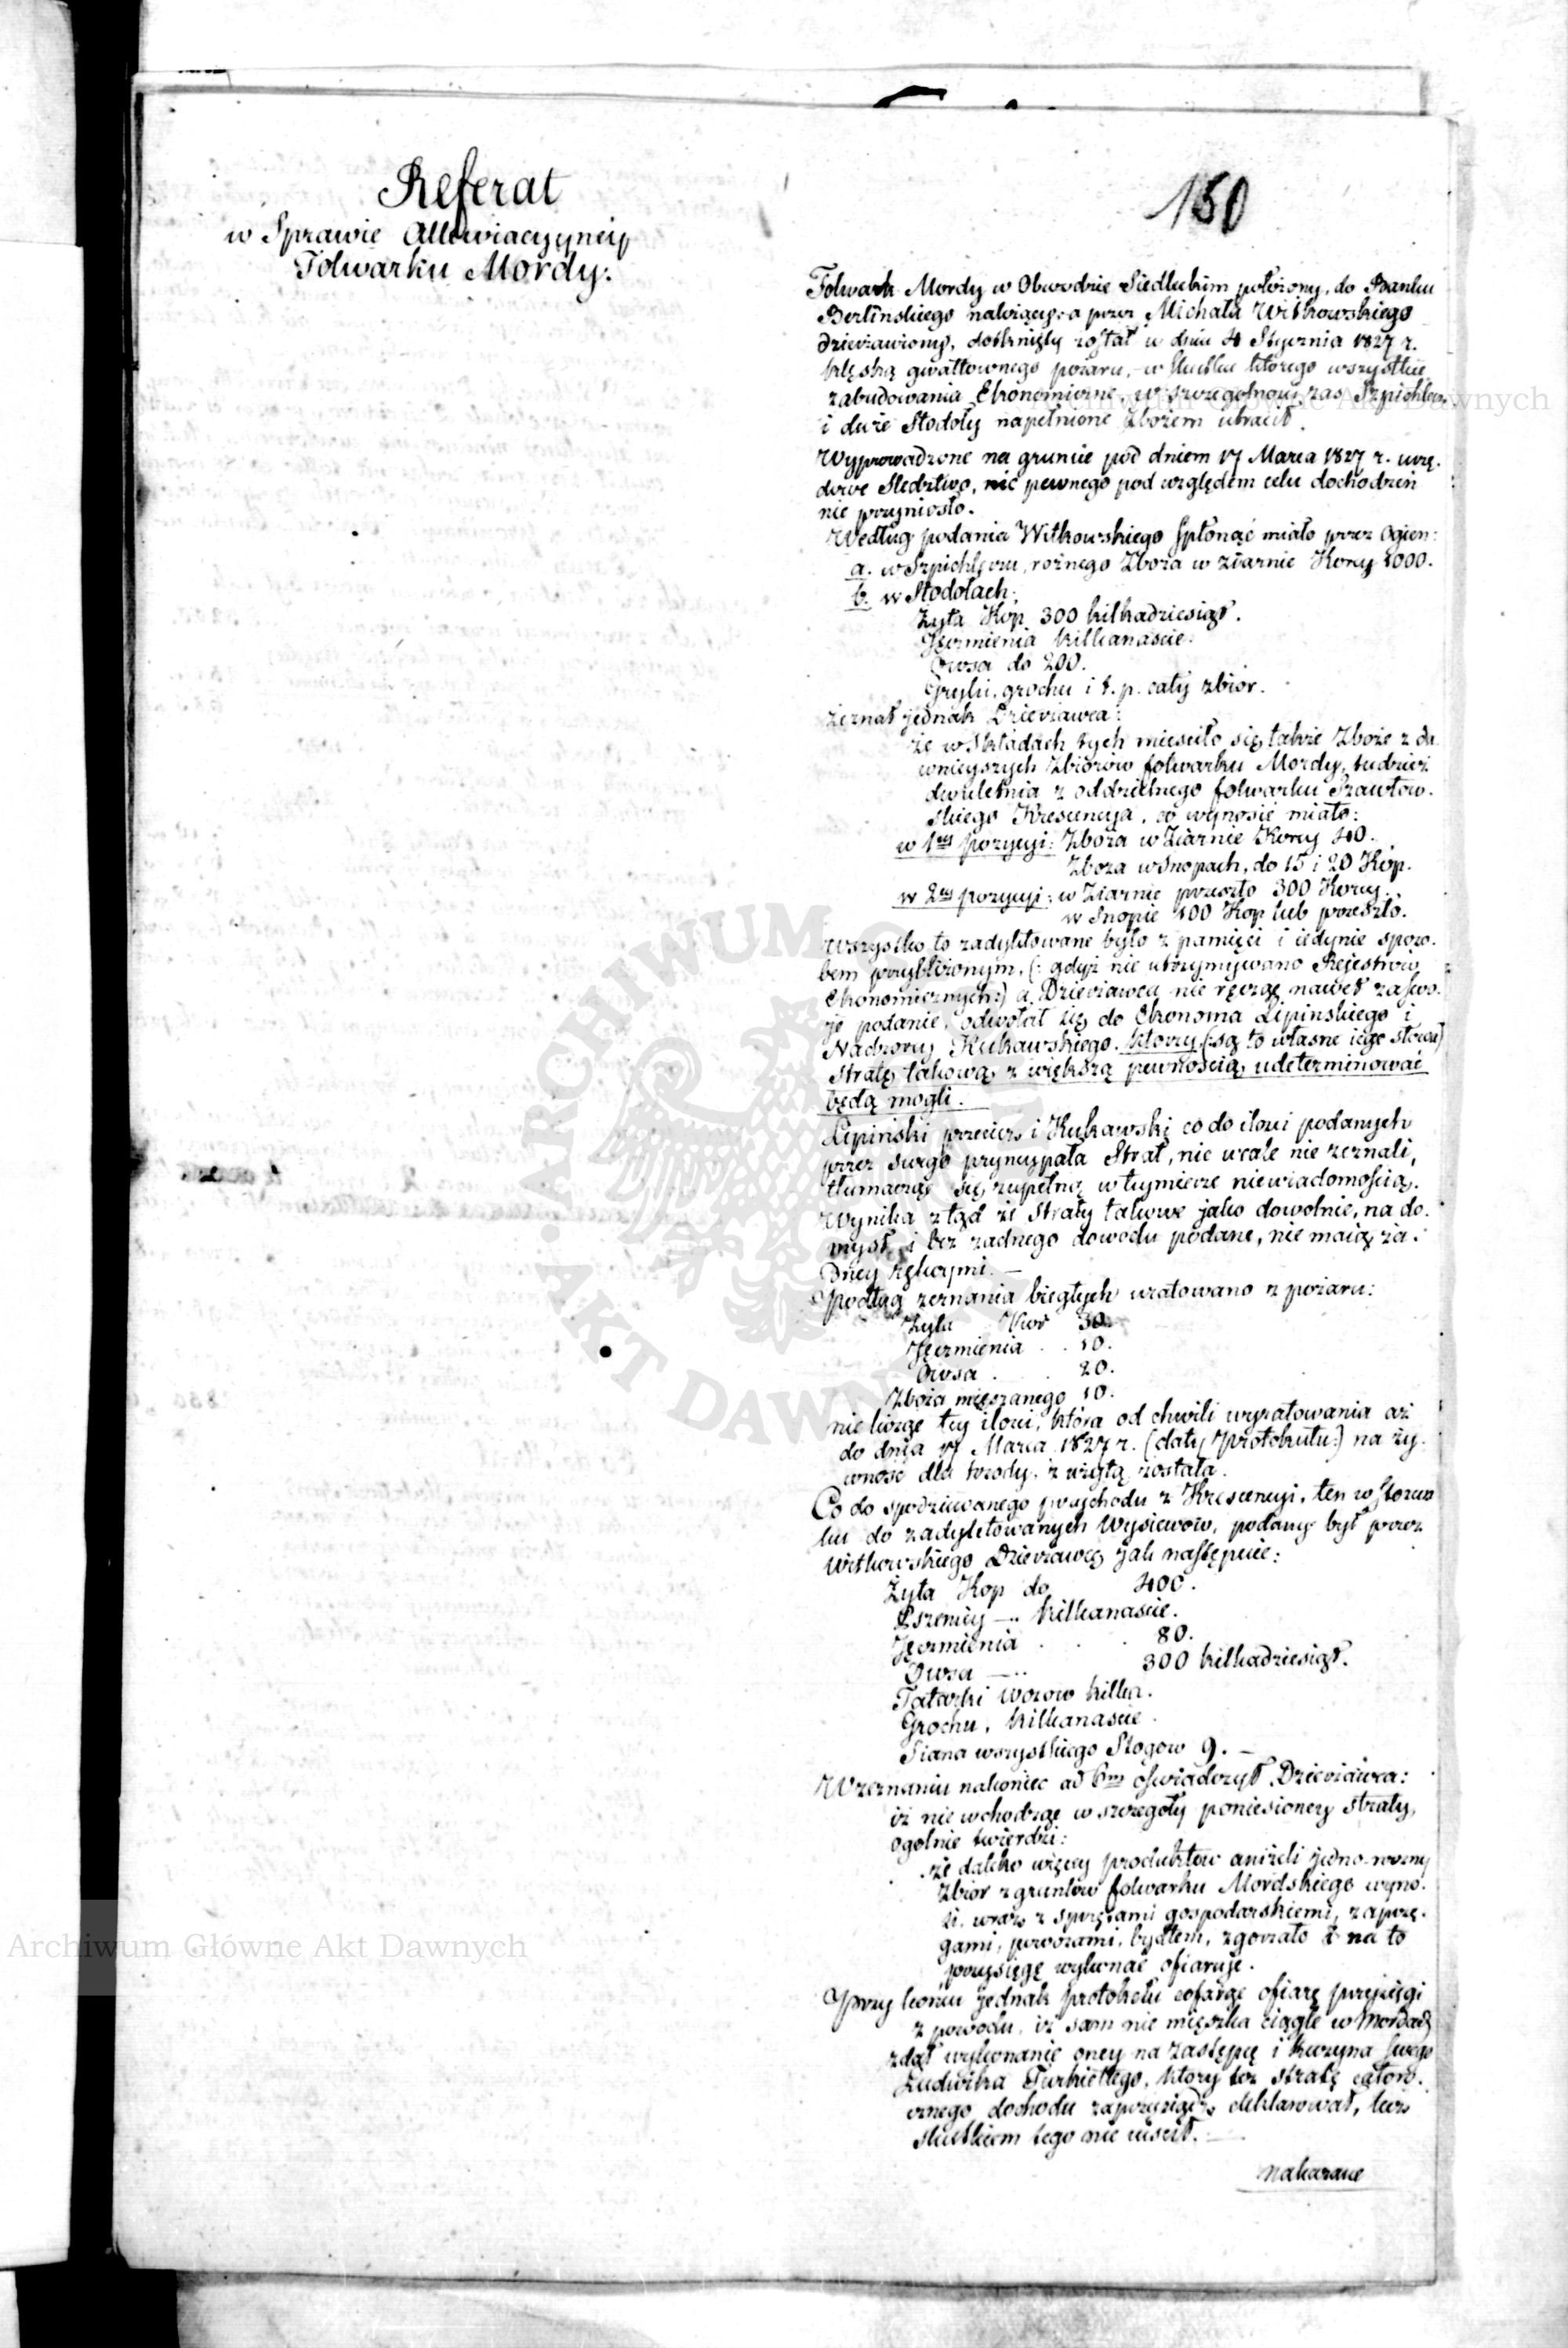 Referat
w Sprawie Allewiacyyney
Folwarku Mordy.
150
Folwark Mordy w Obwodzie Siedleckim położony, do Banku
Berlinskiego należący, a przez Michała Witkowskiego
dzierżawiony, dotknięty został w dniu 4 Stycznia 1827 r.
klęską gwałtownego pożaru, w skutku którego wszystkie
zabudowania Ekonomiczne, w szczegolnosci zas Szpichlerz
i duże Stodoły napełnione Zbożem utracił.
Wyprowadzone na gruncie pod dniem 17 Marca 1827 r. urzę-
dowe Sledztwo, nic pewnego pod względem celu dochodzen
nie przyniosło.
Według podania Witkowskiego spłonąć miało przez Ogien:
a. w Szpichlerzu, rożnego Zboża w ziarnie Korcy 1000.
b. w Stodołach:
Żyta Kop 300 kilkadziesiąt.
Jęczmienia kilkanascie.
Owsa do 200.
Gryki, grochu i t. p. cały zbior.
Zeznał jednak Dzierżawca:
że w Składach tych miesciło się także Zboże z da-
wnieyszych Zbiorów folwarku Mordy, tudzież
dwuletnia z oddzielnego folwarku
skiego Krescencya, co wynosić miało:
w 1ey pozycyi: Zboża w Ziarnie Korcy 40.
Zboża w Snopach, do 15 i 20 Kop.
w 2ey pozycyi: w Ziarnie przeszło 300 Korcy.
w Snopie 100 Kop lub przeszło.
Wszystko to zadyktowane było z pamięci i iedynie sposo-
bem przybliżonym, (: gdyż nie utrzymywano Rejestrów
Ekonomicznych:) a Dzierżawca nie ręcząc nawet za swo-
je podanie, odwołał się do Ekonoma Lipinskiego i
Nadzorcy Kukawskiego, ktorzy (: są to własne iego słowa)
Stratę takową z większą pewnością udeterminować
będą mogli.
Lipiński przecież i Kukawski co do ilosci podanych
przez swego pryncypała Strat, nic wcale nie zeznali,
tłumacząc się zupełną w teymierze niewiadomością.
Wynika ztąd że Straty takowe jako dowolnie, na do-
mysł i bez żadnego dowodu podane, nie maią ża-
dney rękoymi. —
Podług zeznania biegłych uratowano z pożaru:
Żyta Kor 30.
Jęczmienia . . 10.
Owsa . . 20.
Zboża mięszanego 10.
nie licząc tey ilosci, która od chwili wyratowania aż
do dnia 17 Marca 1827 r. (daty Protokułu:) na ży-
wność dla trzody zużytą została.
Co do spodziewanego przychodu z Krescencyi, ten w stosun
ku do zadyktowanych Wysiewów, podany był przez
Witkowskiego Dzierżawcę jak następuie:
Żyta Kop do 400.
Pszenicy —.. kilkanascie.
Jęczmienia . . . 80.
Owsa —.. 300 kilkadziesiąt.
Tatarki wozow kilka.
Grochu, kilkanascie.
Siana wszystkiego Stogow 9. —
W zeznaniu nakoniec ad 6m oswiadczył Dzierżawca:
iż nie wchodząc w szczegoły poniesioney straty,
ogolnie twierdzi:
że daleko więcey produktow aniżeli jedno-roczny
Zbior z gruntów folwarku Mordskiego wyno-
si, wraz z sprzętami gospodarskiemi, zaprzę-
gami, powozami, bydłem, zgorzało i na to
przysięgę wykonać ofiaruje.
Przy koncu jednak protokułu cofając ofiarę przysięgi
z powodu, iż sam nie mięszka ciągle w Mordach
zdał wykonanie oney na zastępcę i kuzyna swego
Ludwika Turkiettego, ktory też stratę całoro-
cznego dochodu zaprzysiądz deklarował, lecz
skutkiem tego nie uiscił. —
nakazane
Archiwum Główne Akt Dawnych
Archiwum Główne Akt Dawnych
ARCHIWUM GŁÓWNE AKT DAWNYCH